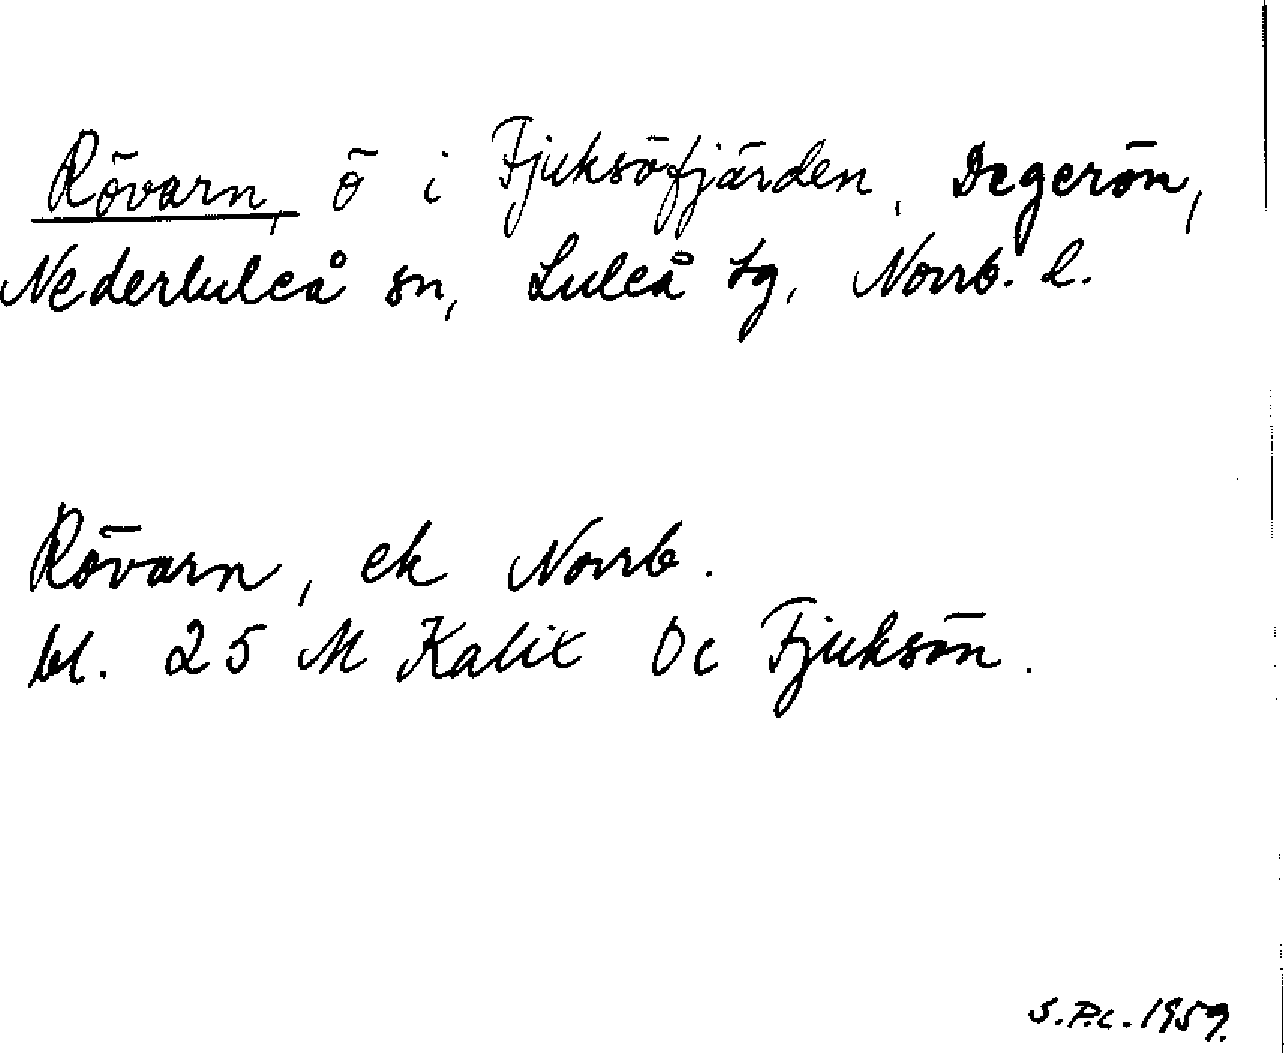 Rövarn, ö i Fjuksöfjärden, Degerön,
Nederluleå sn, Luleå tg, Norrb. l.
Rövarn, ek Norrb.
bl. 25 M Kalix Öc Fjuksön.
S.P.C. 1959.